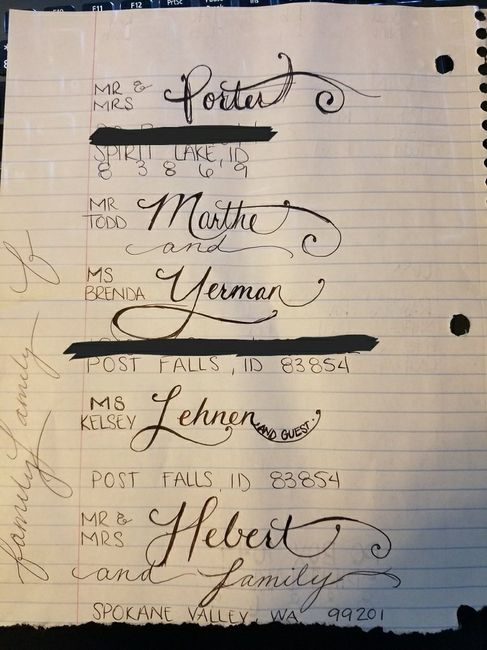 F11 F12 PrtSc Ins
MR & MRS Porter
SPIRIT LAKE, ID
8 3 8 6 9
MR TODD Marthe
and
MS BRENDA Yerman
POST FALLS, ID 83854
MS KELSEY Lehnen AND GUEST.
POST FALLS, ID 83854
MR & MRS Hebert
and family
SPOKANE VALLEY, WA 99201
family family